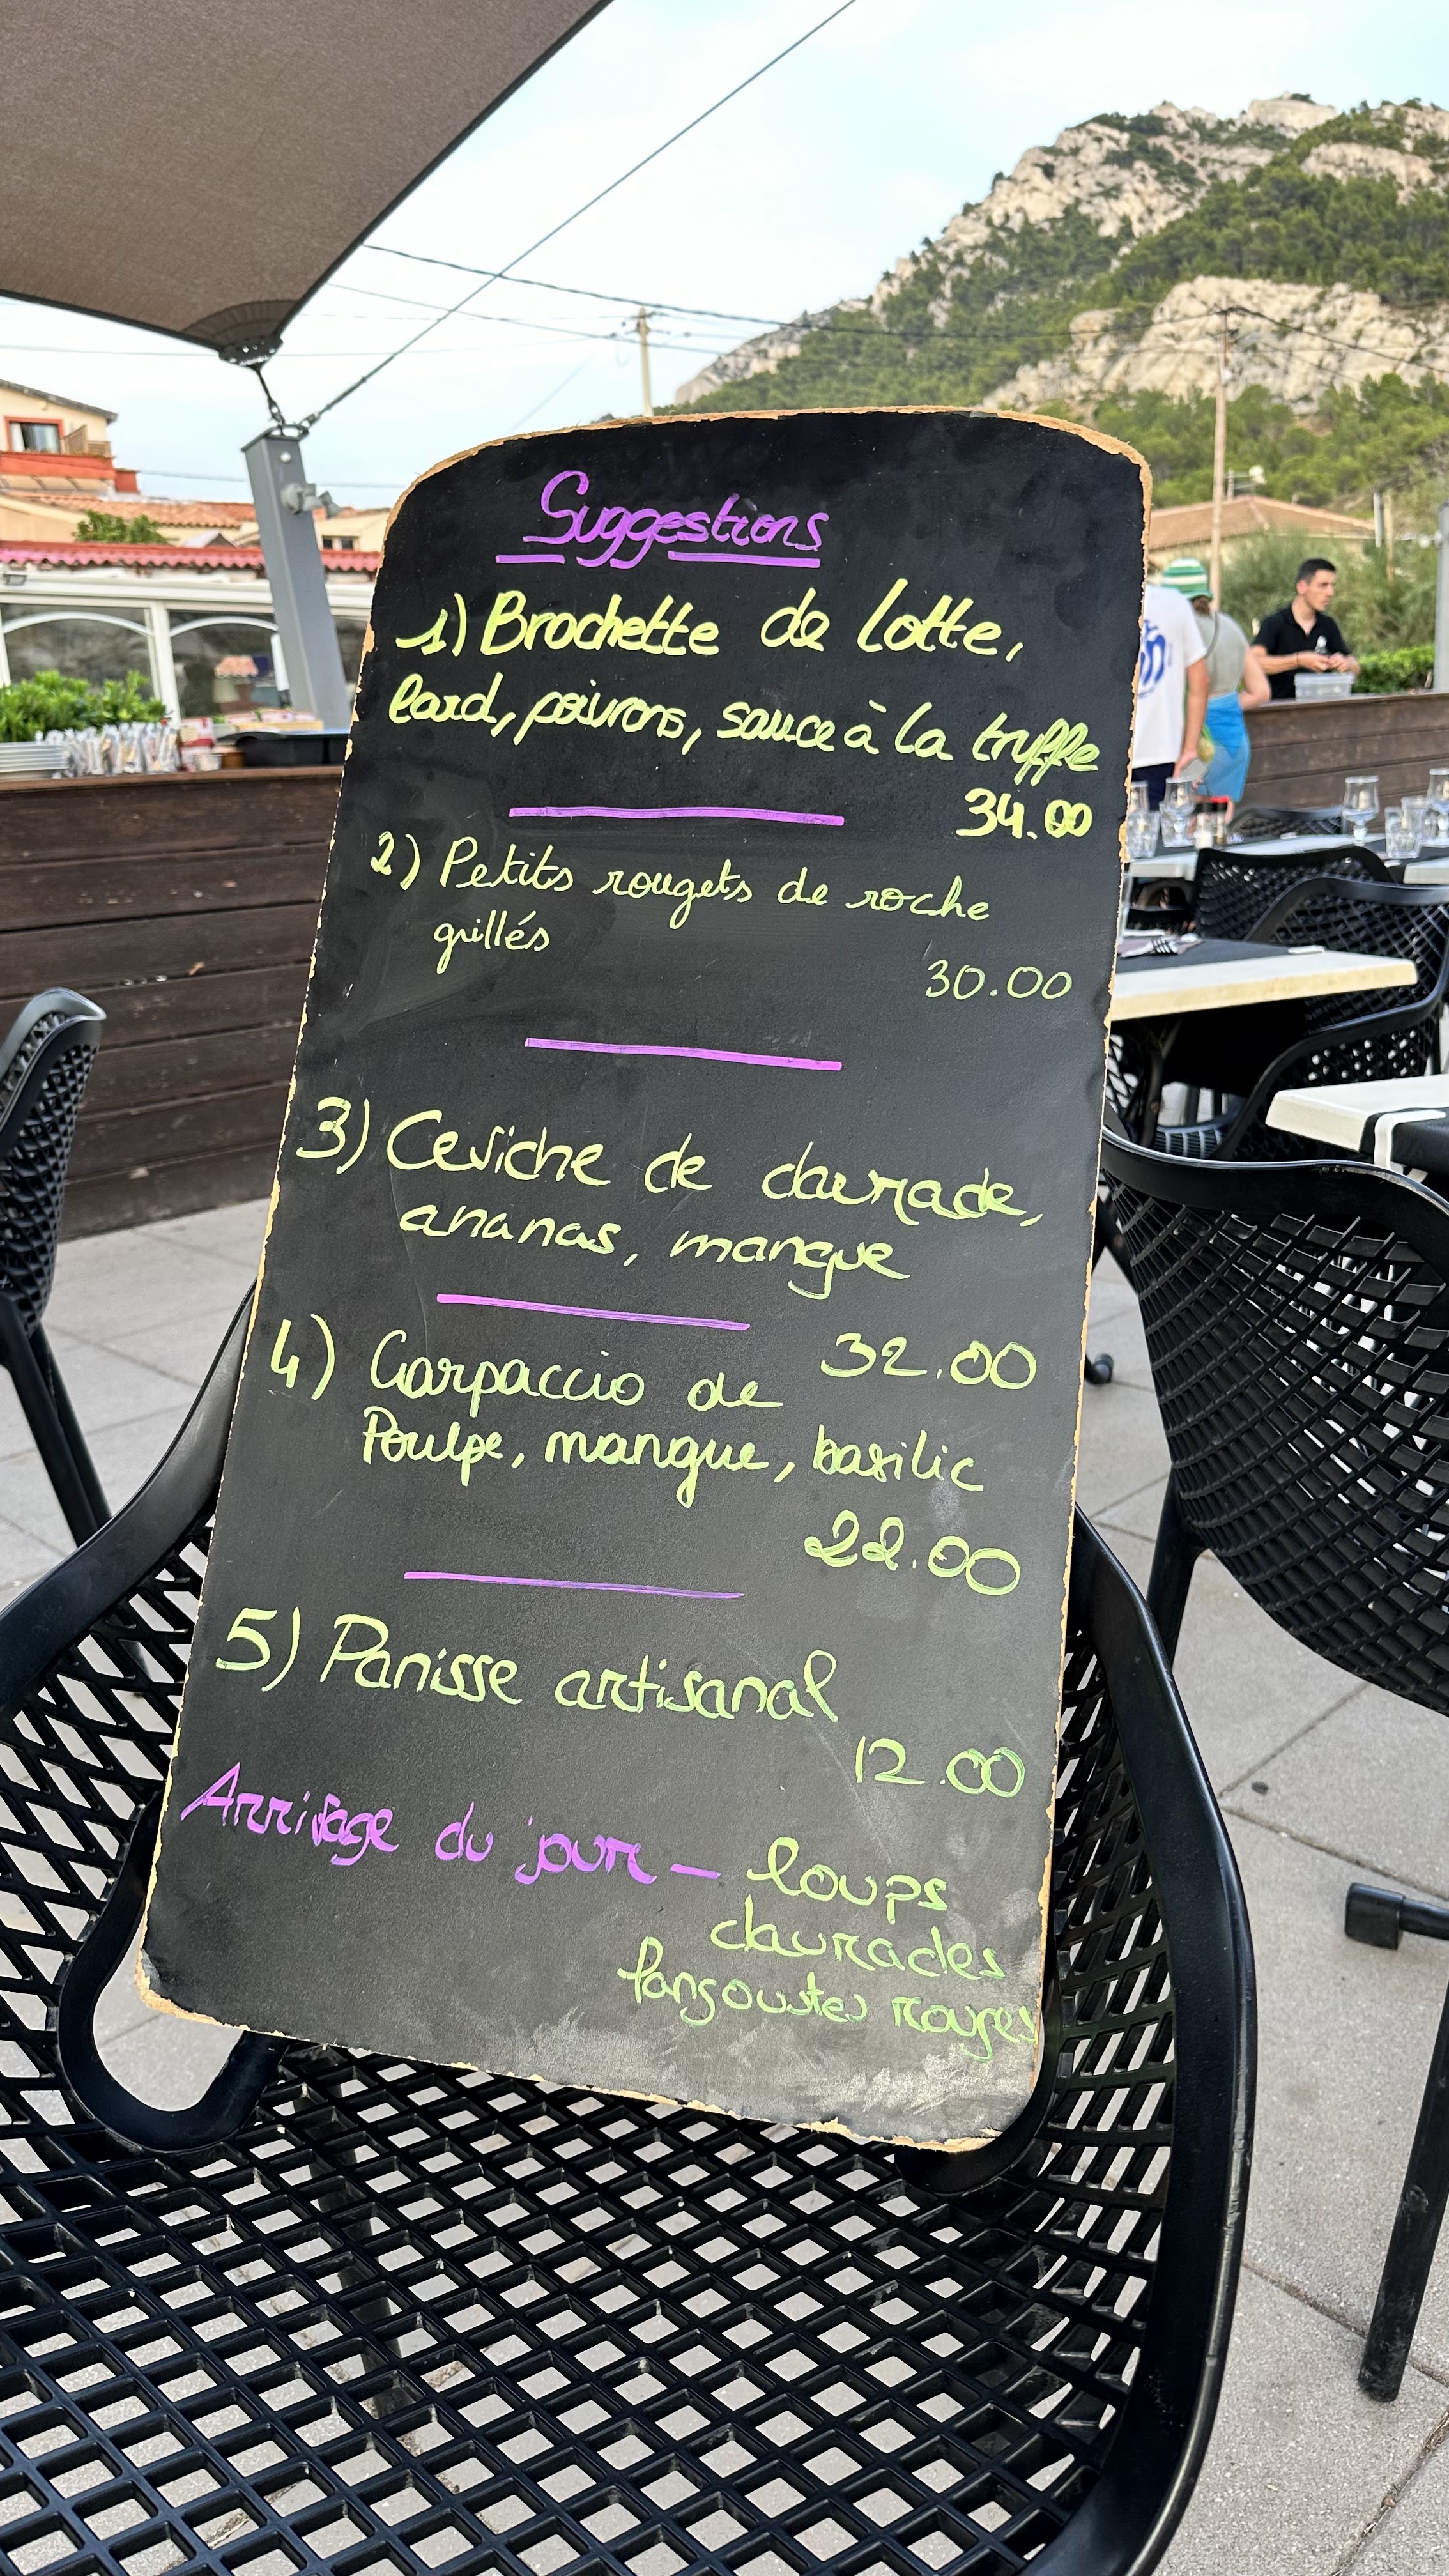 Suggestions
1) Brochette de lotte,
lard, poivrons, sauce à la truffe
34.00
2) Petits rougets de roche
grillés
30.00
3) Ceviche de daurade,
ananas, mangue
32.00
4) Carpaccio de
Poulpe, mangue, basilic
22.00
5) Panisse artisanal
12.00
Arrivage du jour - loups
daurades
langoustes rouges